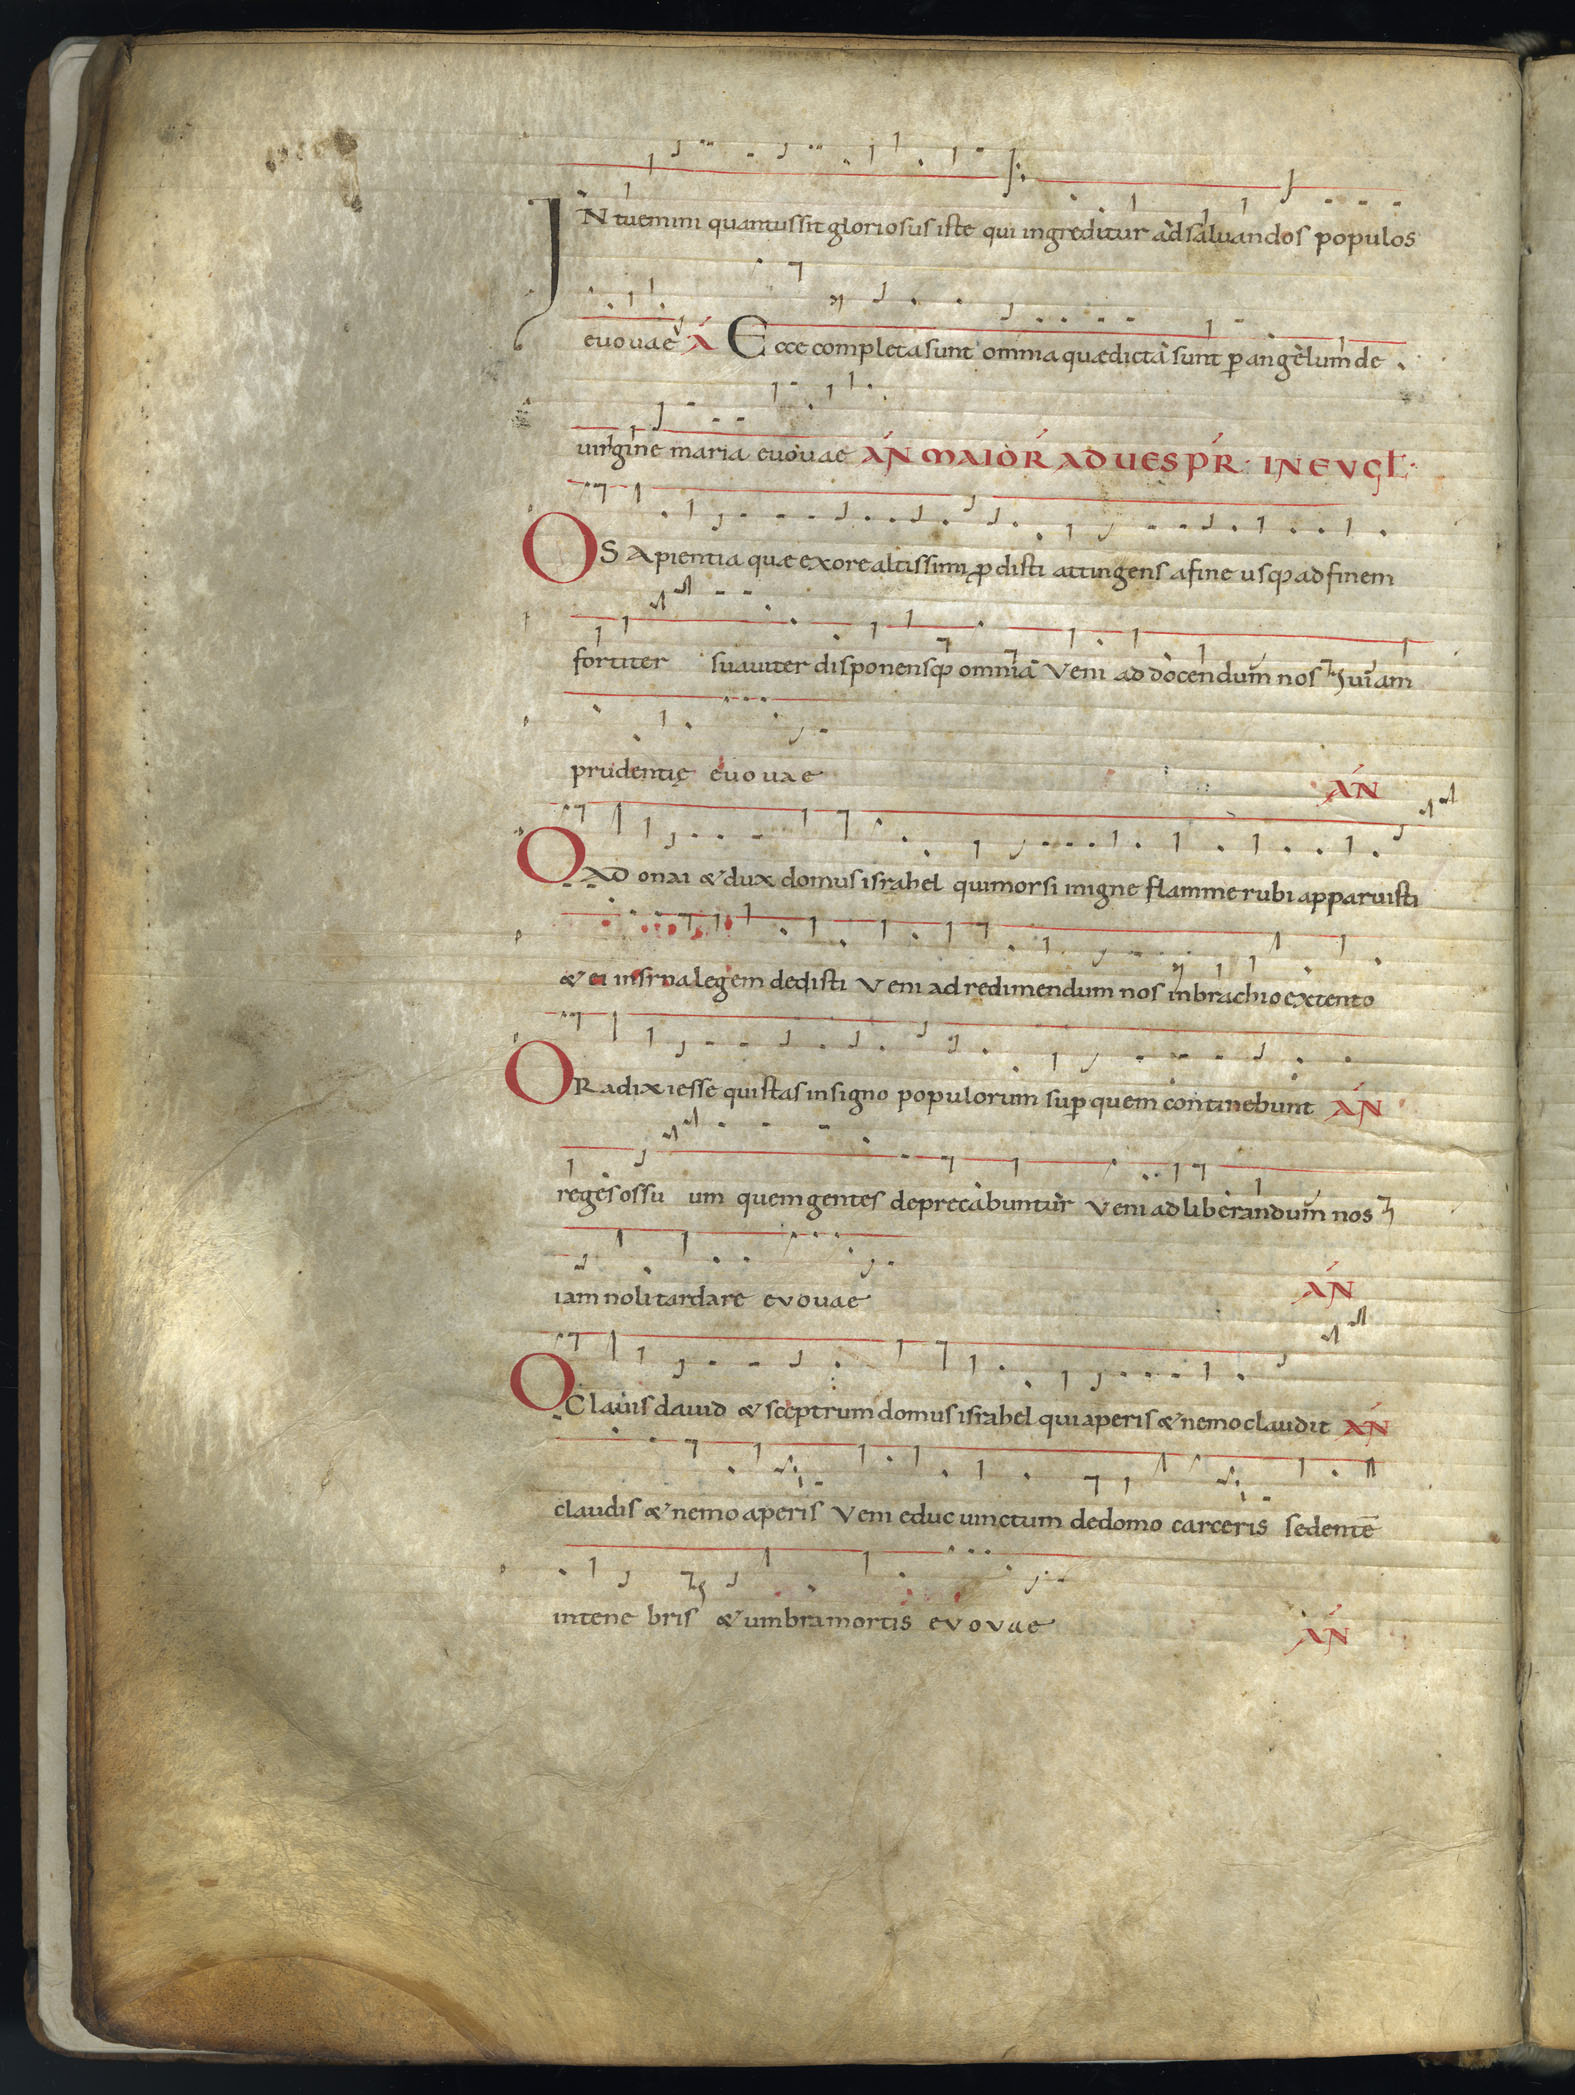 INtuemini quantus sit gloriosus iste qui ingreditur ad saluandos populos
euouae A Ecce completa sunt omnia quæ dicta sunt p angelum de
uirgine maria euouae AN MAIOR AD UESPR. IN EVGL.
O SApientia quæ ex ore altissimi pdisti attingens a fine usq ad finem
fortiter suauiter disponensq omnia Veni ad docendum nos uiam
prudentię euouae AN
O ADonai & dux domus israhel qui morsi in igne flamme rubi apparuisti
& ei in sina legem dedisti Veni ad redimendum nos in brachio extento
O Radix iesse qui stas in signo populorum sup quem continebunt AN
reges os suum quem gentes deprecabuntur Veni ad liberandum nos
iam noli tardare evouae AN
O Clauis dauid & sceptrum domus israhel qui aperis & nemo claudit AN
claudis & nemo aperis Veni educ uinctum de domo carceris sedentē
in tenebris & umbra mortis evovae AN